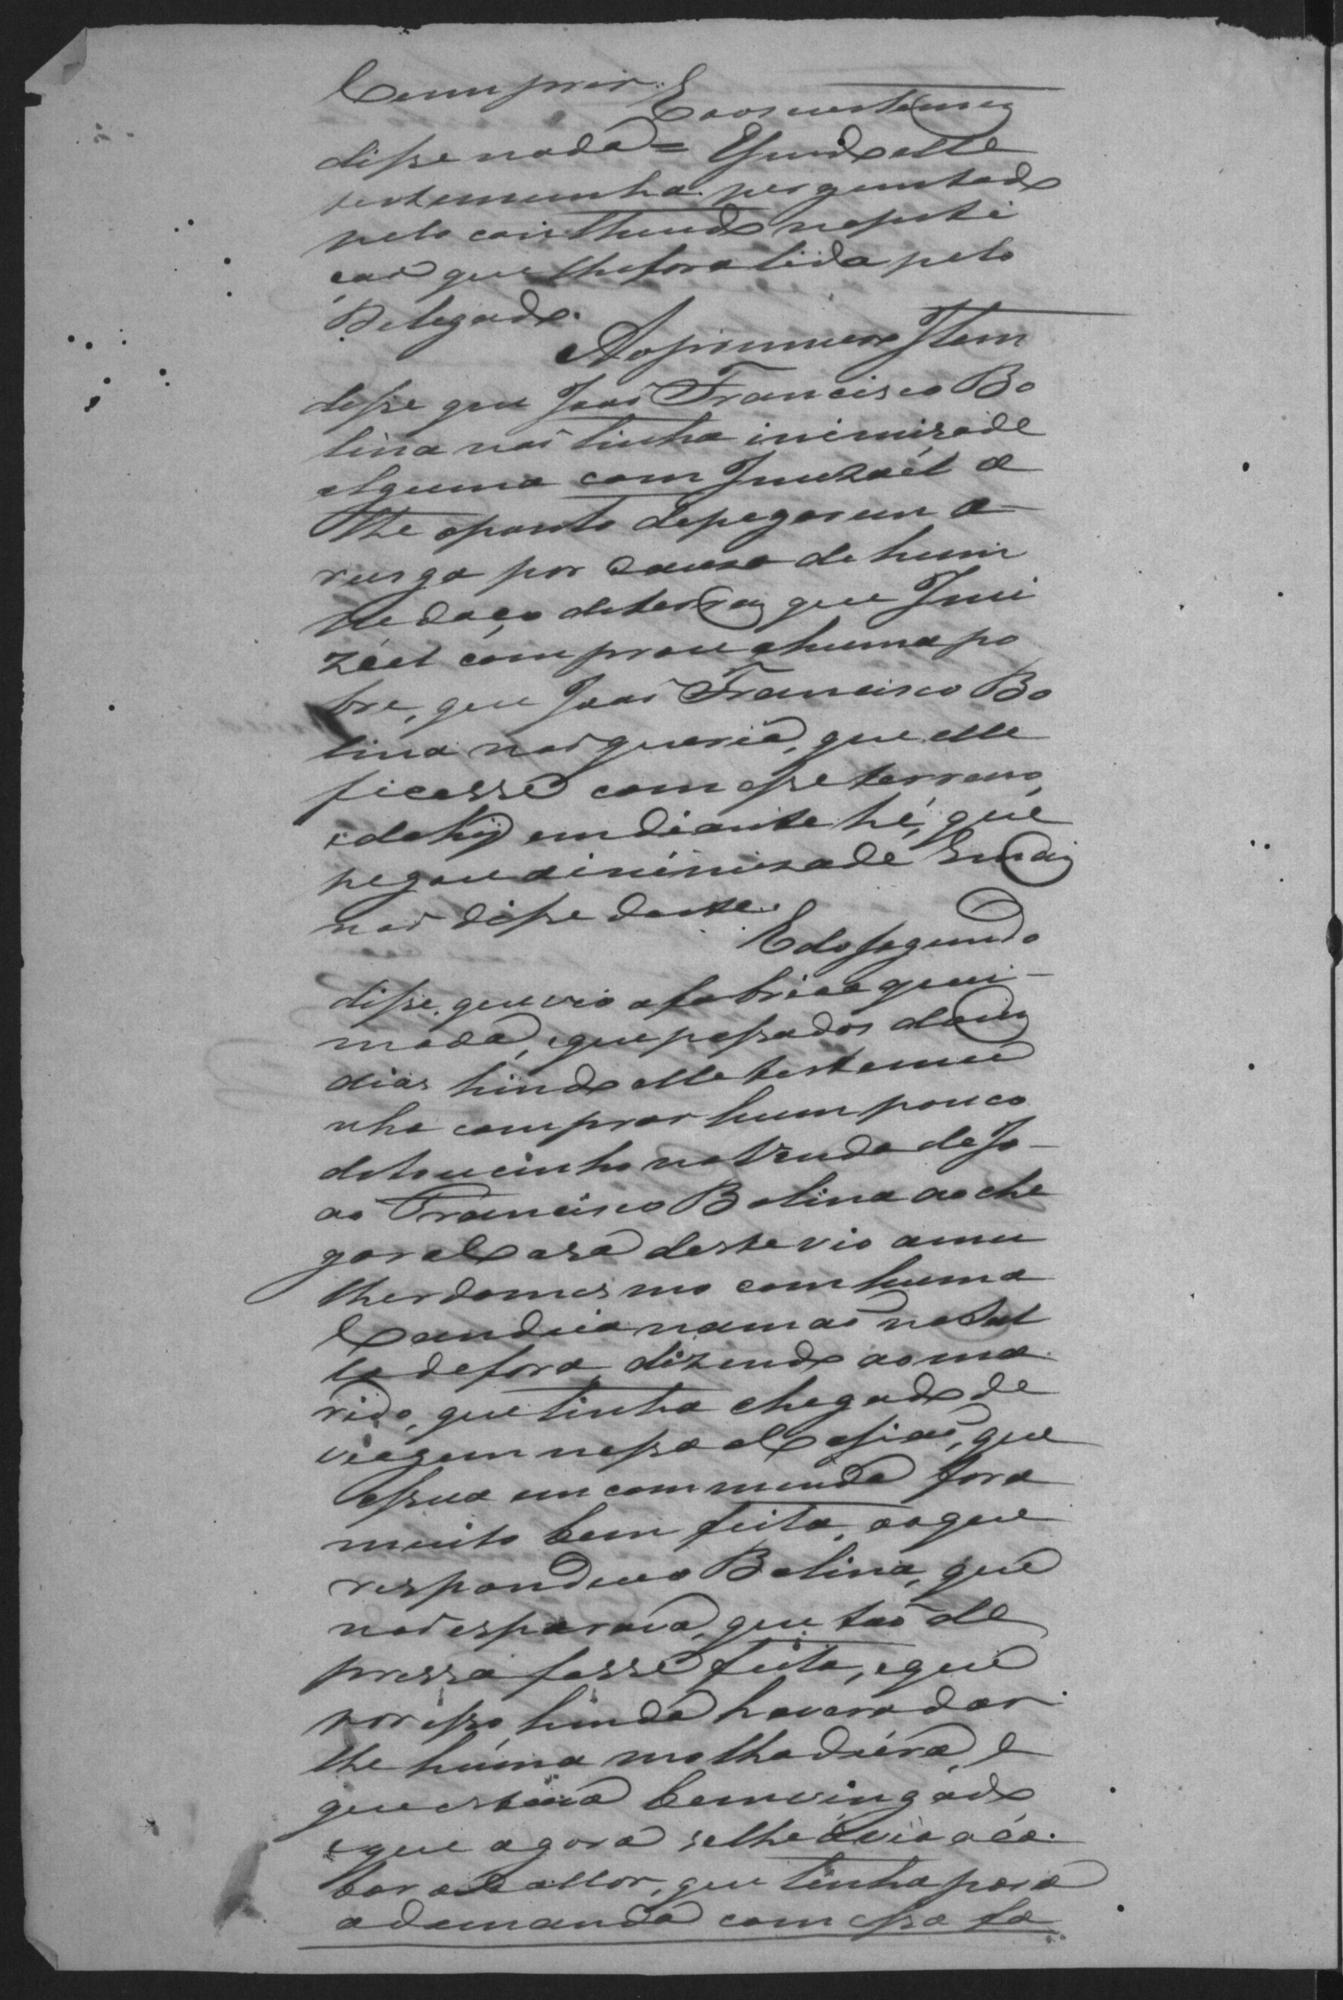 Cumprir. E aos costumes
disse nada = Sendo elle
testemunha perguntado
pelo conthiudo na peti
ção que lhe fora lida pelo
Delegado.
Ao primeiro Item
disse que João Francisco Bo
lina não tinha inimizade
alguma com Ismael a
the o ponto de pegarem a
rusga por causa de hum
pedaço de terras que
comprou a huma po
bre, que João Francisco Bo
lina não queria, que elle
ficasse com esse terreno,
e dahy em diante hé, que
pegou a inimizade E mais
não disse deste.
E do segundo
disse, que vio a fabrica quei-
mada, e que passados dois
dias hindo elle testemu
nha comprar hum pouco
de toucinho na Venda de Jo-
ão Francisco Bolina ao che
gar al Casa deste vio a mu
lher do mesmo com huma
Candeia na mão na sal
la de fora, dizendo ao ma
rido, que tinha chegado de
viagem nessa occasião, que
a sua encommenda fora
muito bem feita, ao que
respondeu Bolina, que
não esperava, que tão de
pressa fosse feita, e que
por isso hinda havera dar
lhe huma molhadéra, e
que estava bem vingado
e que agora se lhe avia aca
bar o callor, que tinha para
a demanda com essa fa